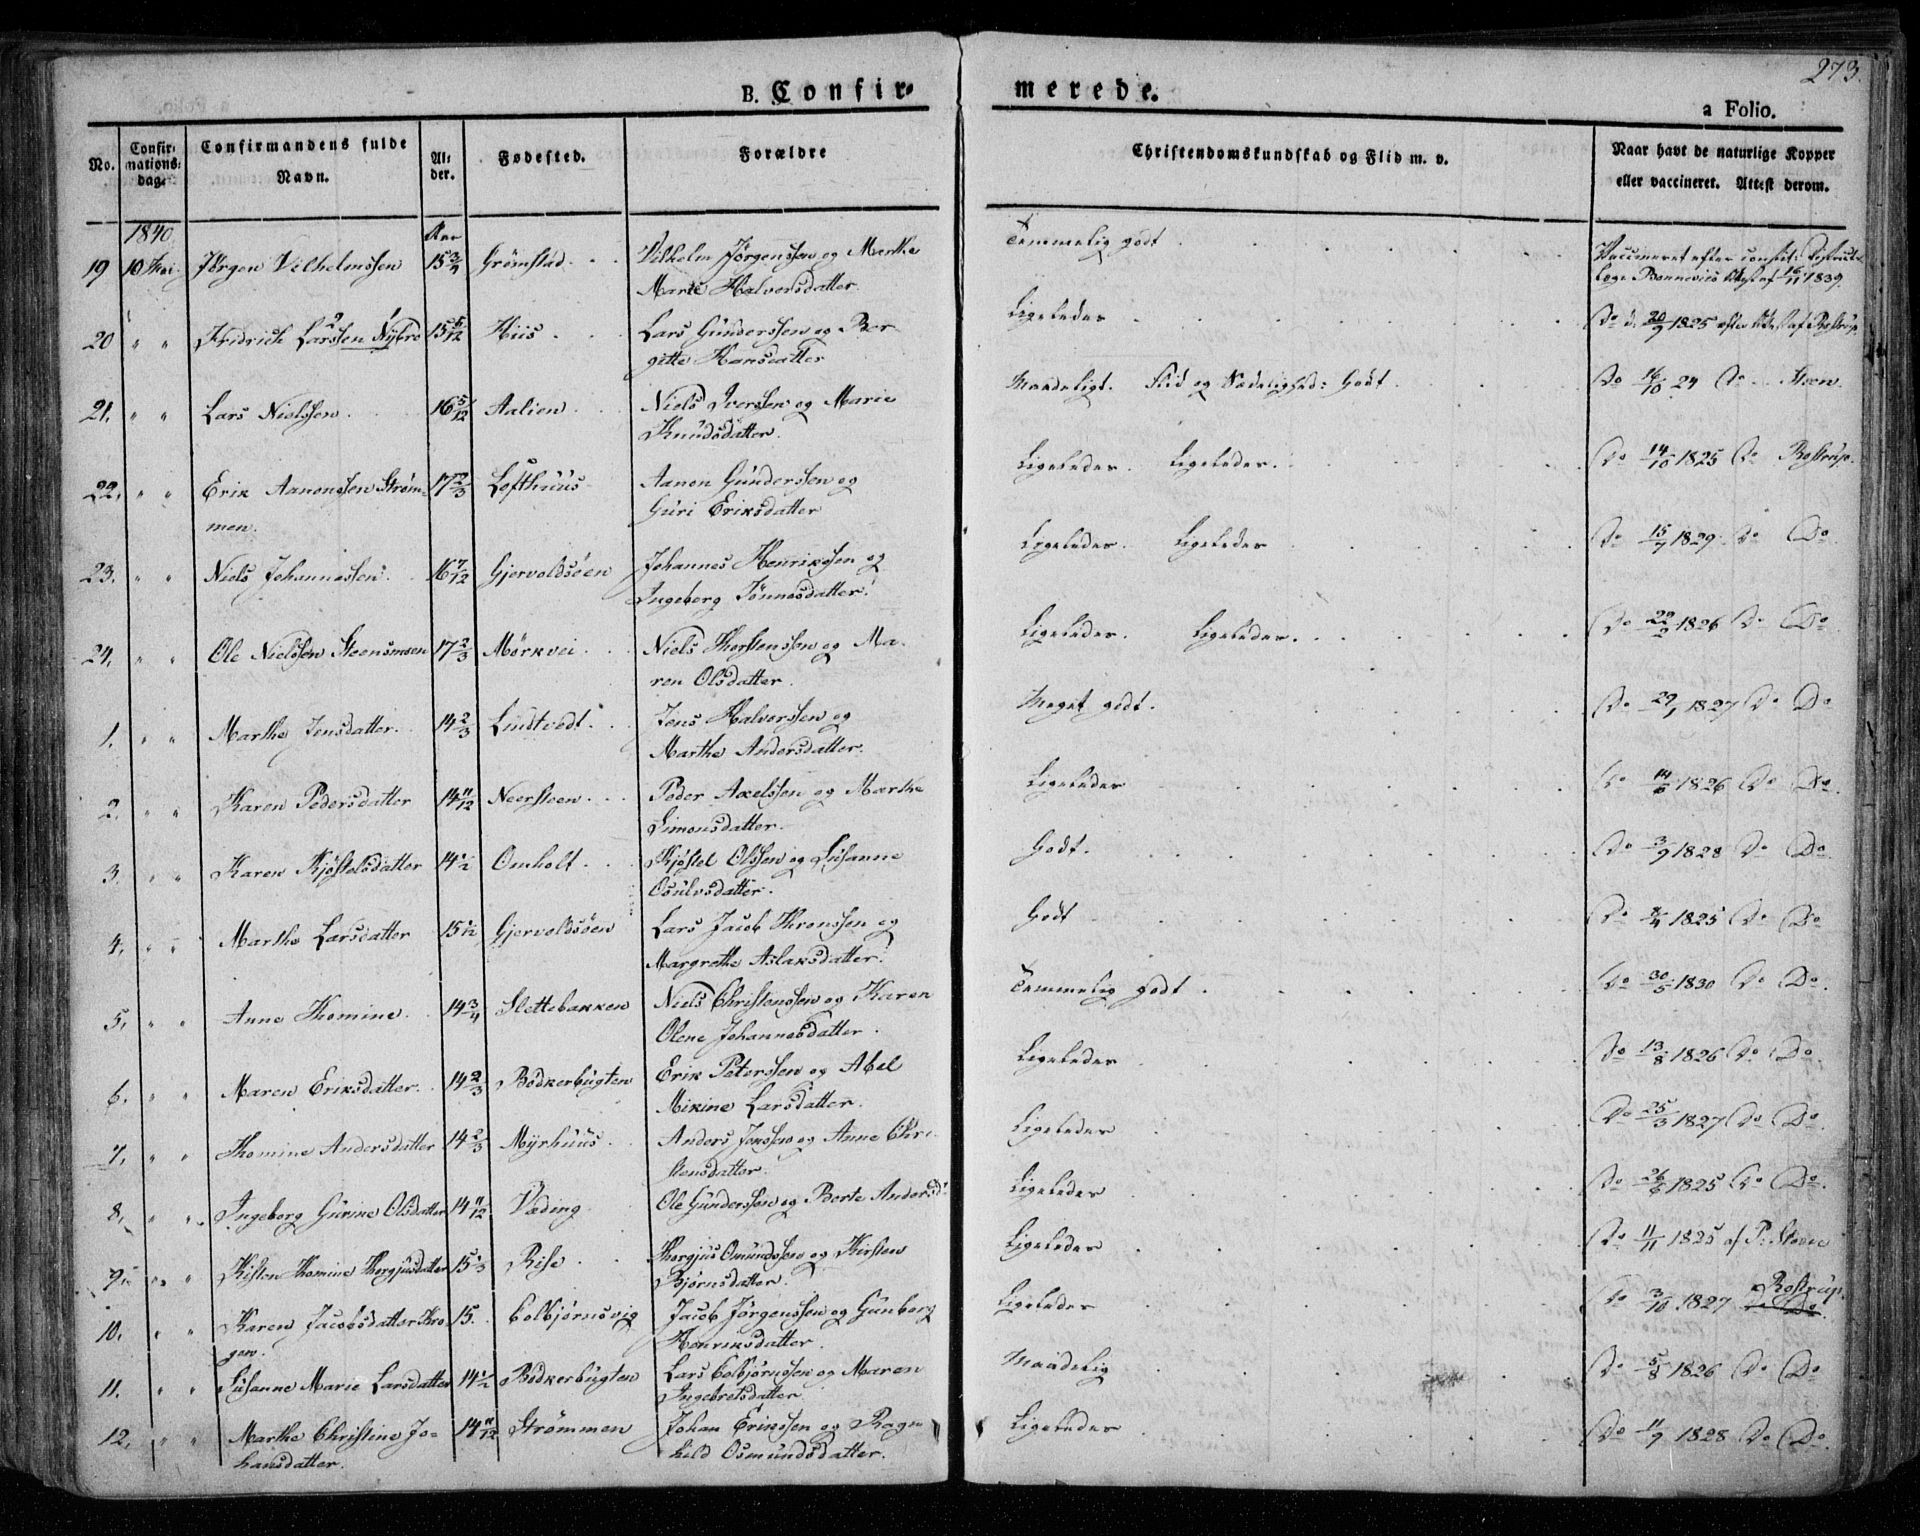 273.
B. Confirmerede.
a Folio.
No. Confirmationsdag. Confirmandens fulde Navn. Alder. Fødested. Forældre Christendomskundskab og Flid m. v. Naar havt de naturlige Kopper eller vaccineret. Attest derom.
1840 Aar
19 10 Mai Jörgen Vilhelmssen 15 3/4 Grömstad Vilhelm Jörgenssen og Marthe Marie Halvorsdatter. Temmelig godt. Vaccineret efter const: Districtslæge Bonnevies Attest af 16/11 1839.
20 " " Fridrich Larssen Nÿbro 15 5/12 Hiis Lars Gunderssen og Bergitte Hansdatter Ligeledes Do d. 20/9 1825 efter Attest af Rostrup
21. " " Lars Nielssen. 16 5/12 Aalien Niels Iverssen og Marie Knudsdatter. Maadeligt. Flid og Sædelighed: Godt. Do 16/10 24 Do
22. " " Erik Aanonssen Strømmen. 17 2/3 Lofthuus Aanon Gunderssen og Guri Eriksdatter Ligeledes. Ligeledes. Do 14/10 1825 Do Rostrup.
23. " " Niels Johannessen. 16 7/12 Gjervoldsöen Johannes Henrikssen og Ingeborg Tönnesdatter. Ligeledes. Ligeledes Do 15/7 1829. Do Do
24. " " Ole Nielssen Steensmoen 17 2/3 Mörkvei Niels Thorstenssen og Maren Olsdatter. Ligeledes. Ligeledes. Do 1826 Do Do
1. " " Marthe Jensdatter. 14 2/3 Lindtvedt. Jens Halvorssen og Marthe Andersdatter. Meget godt. Do 1827 Do Do
2. " " Karen Pedersdatter 14 11/12 Neersteen. Peder Axelssen og Marthe Simonsdatter. Ligeledes Do 14/6 1826 Do Do.
3. " " Karen Kjöstelsdatter 14 1/2 Omholt. Kjöstel Olssen og Susanne Osulvsdatter. Godt. Do 3/9 1828 Do Do
4. " " Marthe Larsdatter 15 1/2 Gjervoldsöen Lars Jacob Thronssen og Margrethe Aslaksdatter. Godt Do 1825 Do Do
5. " " Anne Thomine. 14 3/4 Slettebakken Niels Christenssen og Karen Olene Johannesdatter. Temmelig godt. Do 30/5 1830 Do Do.
6. " " Maren Eriksdatter. 14 2/3 Bödkerbugten Erik Peterssen og Abel Mikine Larsdatter. Ligeledes Do 13/8 1826 Do Do.
7. " " Thomine Andersdatter 14 2/3 Myrhuus. Anders Jenssen og Anne Christensdatter. Ligeledes Do 25/3 1827 Do Do.
8. " " Ingeborg Gurine Olsdatter 14 11/12 Væding. Ole Gunderssen og Berte Andersd: Ligeledes Do 26/6 1825 Do Do.
9. " " Kisten Thomine Thergjusdatter 15 1/3 Rise. Thergjus Omundssen og Kirsten Bjørnsdatter. Ligeledes Do 11/11 1825 af P:
10. " " Karen Jacobsdatter Skrogen. 15. Colbjørnsvig Jacob Jörgenssen og Gunborg Henriksdatter. Ligeledes Do 3/10 1827 Rostrup. Do Do
11. " " Susanne Marie Larsdatter 14 1/2 Bödkerbugten Lars Colbjørnssen og Maren Ingebretsdatter. Maadelig Do 5/8 1826 Do Do.
12. " " Marthe Christine Johansdatter. 14 11/12 Strömmen Johan Erikssen og Ragnhild Osmundsdatter. Ligeledes Do 11/9 1828 Do Do.